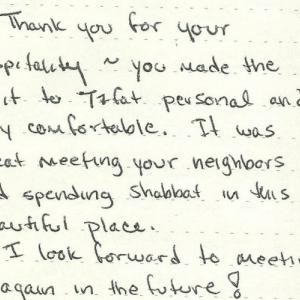 Thank you for your
spitality ~ you made the
it to Tzfat personal and
y comfortable. It was
eat meeting your neighbors
d spending shabbat in this
autiful place.
I look forward to meetin
again in the future!